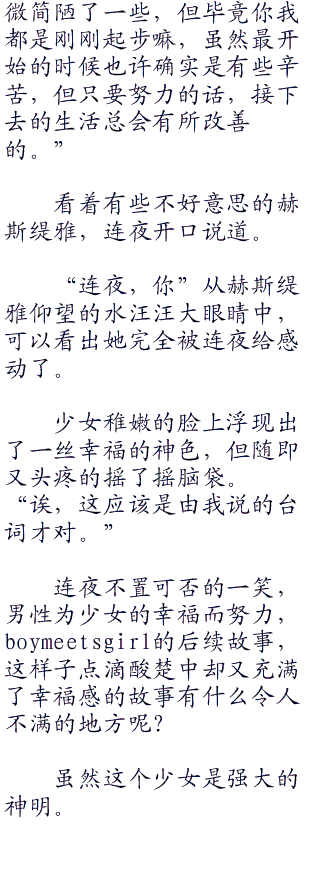 微简陋了一些，但毕竟你我
都是刚刚起步嘛，虽然最开
始的时候也许确实是有些辛
苦，但只要努力的话，接下
去的生活总会有所改善
的。”
看着有些不好意思的赫
斯缇雅，连夜开口说道。
“连夜，你”从赫斯缇
雅仰望的水汪汪大眼睛中，
可以看出她完全被连夜给感
动了。
少女稚嫩的脸上浮现出
了一丝幸福的神色，但随即
又头疼的摇了摇脑袋。
“诶，这应该是由我说的台
词才对。”
连夜不置可否的一笑，
男性为少女的幸福而努力，
boymeetsgirl的后续故事，
这样子点滴酸楚中却又充满
了幸福感的故事有什么令人
不满的地方呢？
虽然这个少女是强大的
神明。